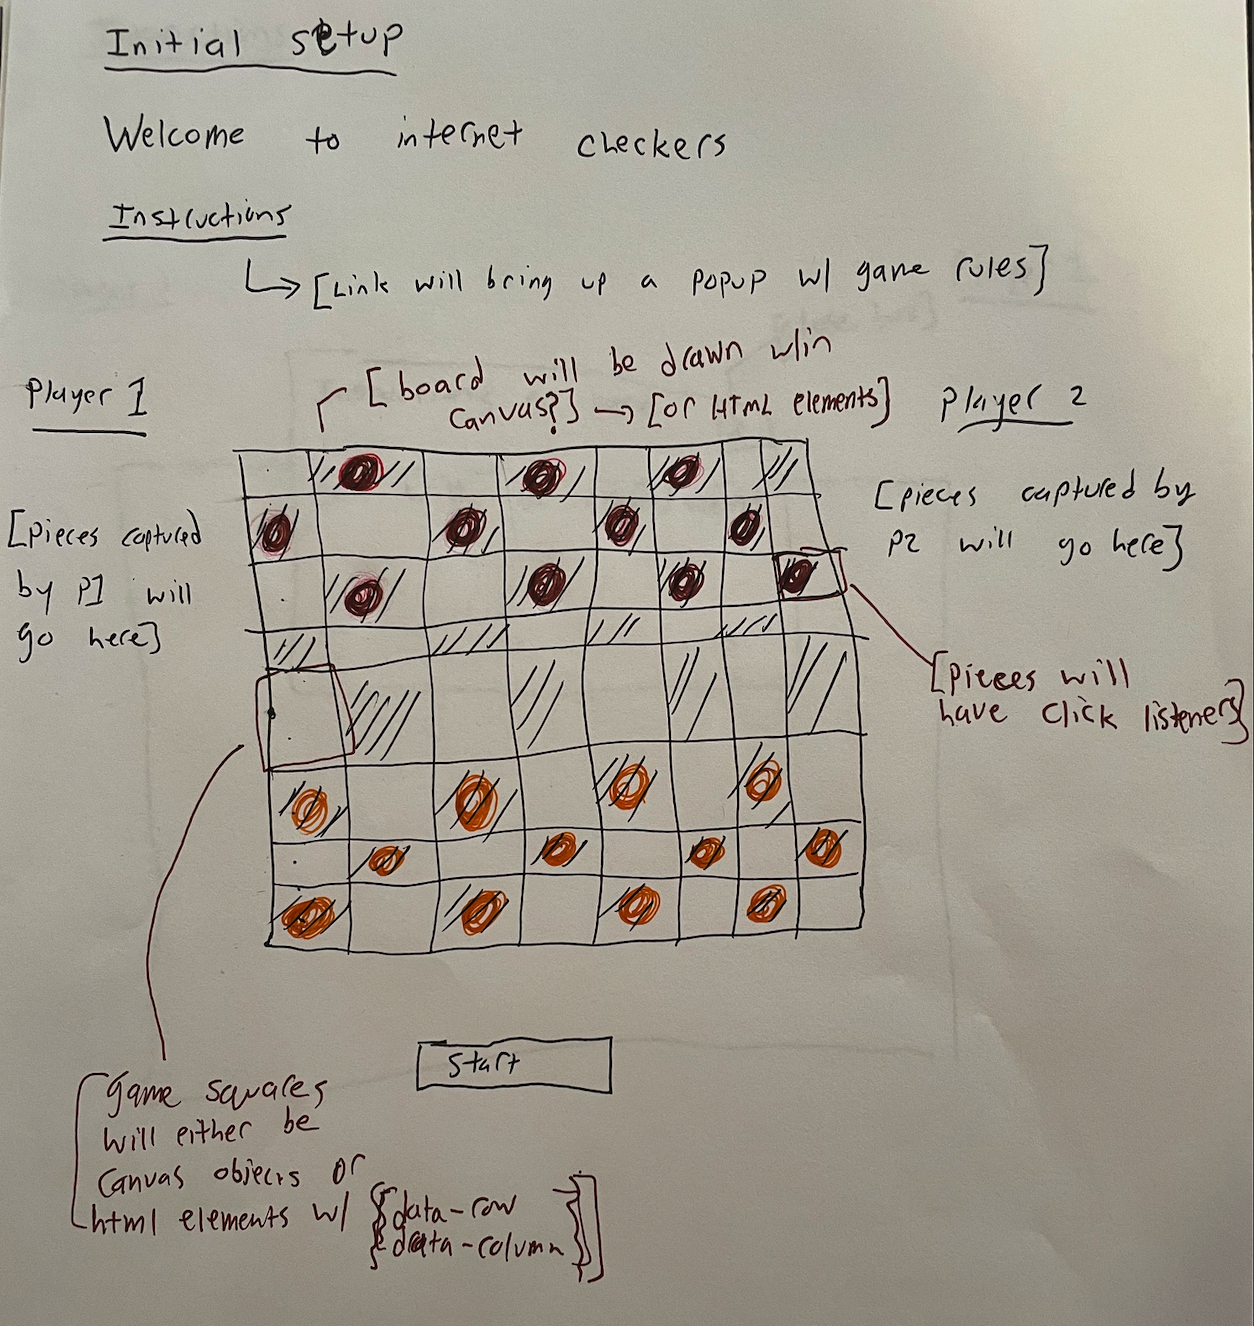 Initial setup
Welcome to internet checkers
Instructions
[Link will bring up a popup w/ game rules]
[board will be drawn w/in
canvas?] → [or HTML elements]
Player 1
[Pieces captured
by P1 will
go here]
Player 2
[pieces captured by
P2 will go here]
[Pieces will
have click listeners]
Start
[game squares
will either be
canvas objects or
html elements w/ {data-row
data-column}]